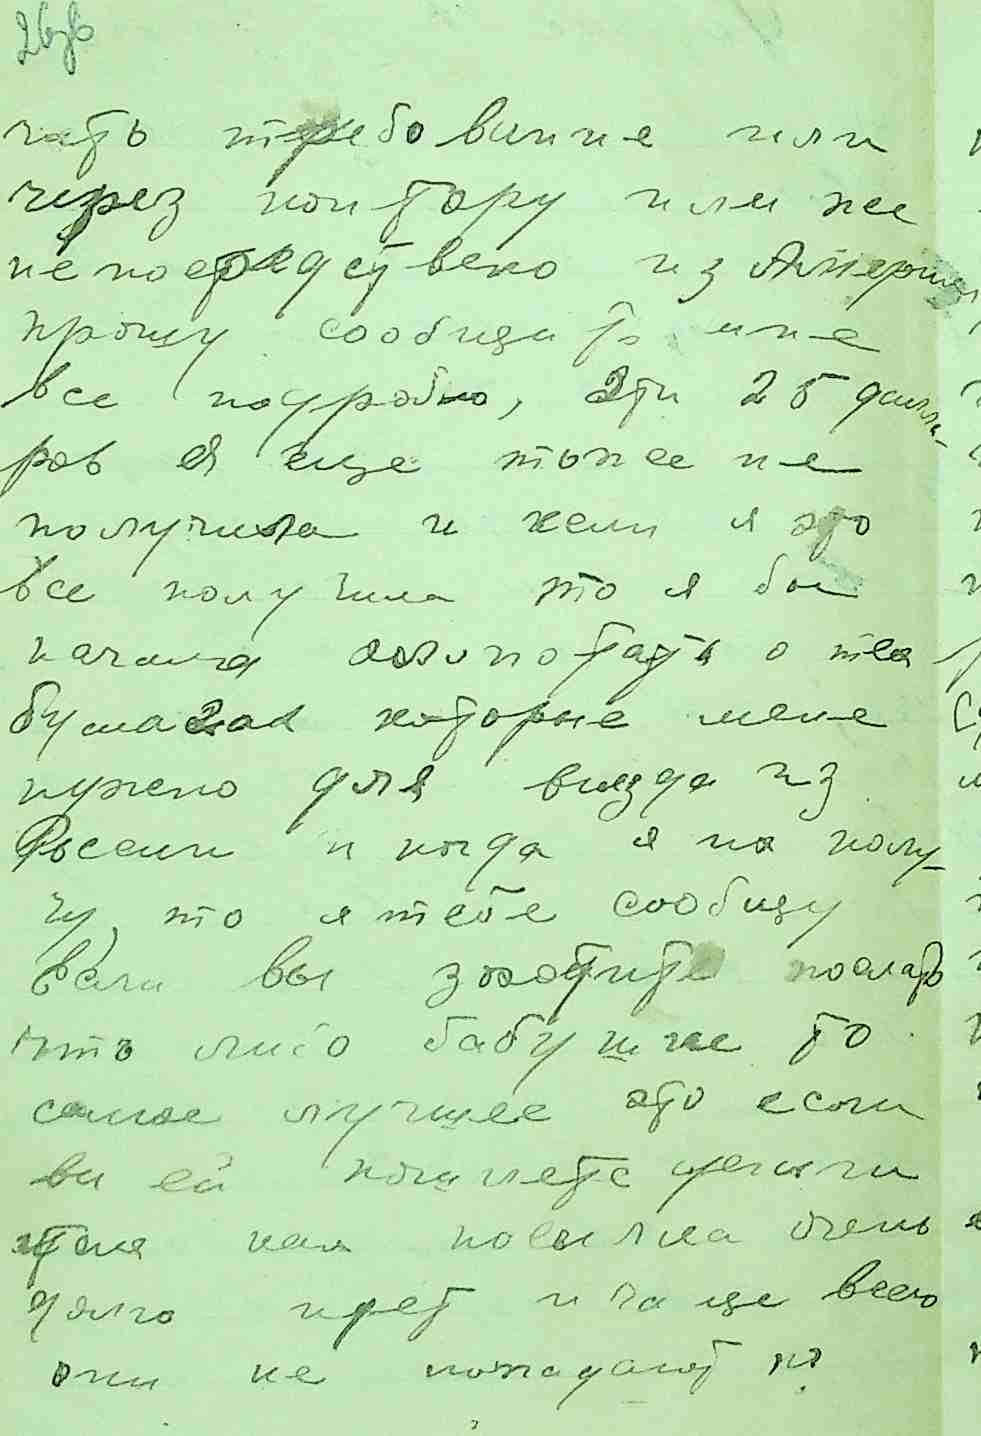 чать требование или
через контору или же
непосредствено из Америки
прошу сообщить мне
все подробно, Эти 25 долла-
ров я еще тоже не
получила и если я это
все получила то я бы
начала о тех
бумагах которые мене
нужено для виезда из
Россеии и когда я их полу-
чу, то я тебе сообщу
Если вы захотите послать
что либо бабушке то
самое лучшее это если
ви ей пошлете деньги
так как посылка очень
долго идет и чаще всего
они не попадают